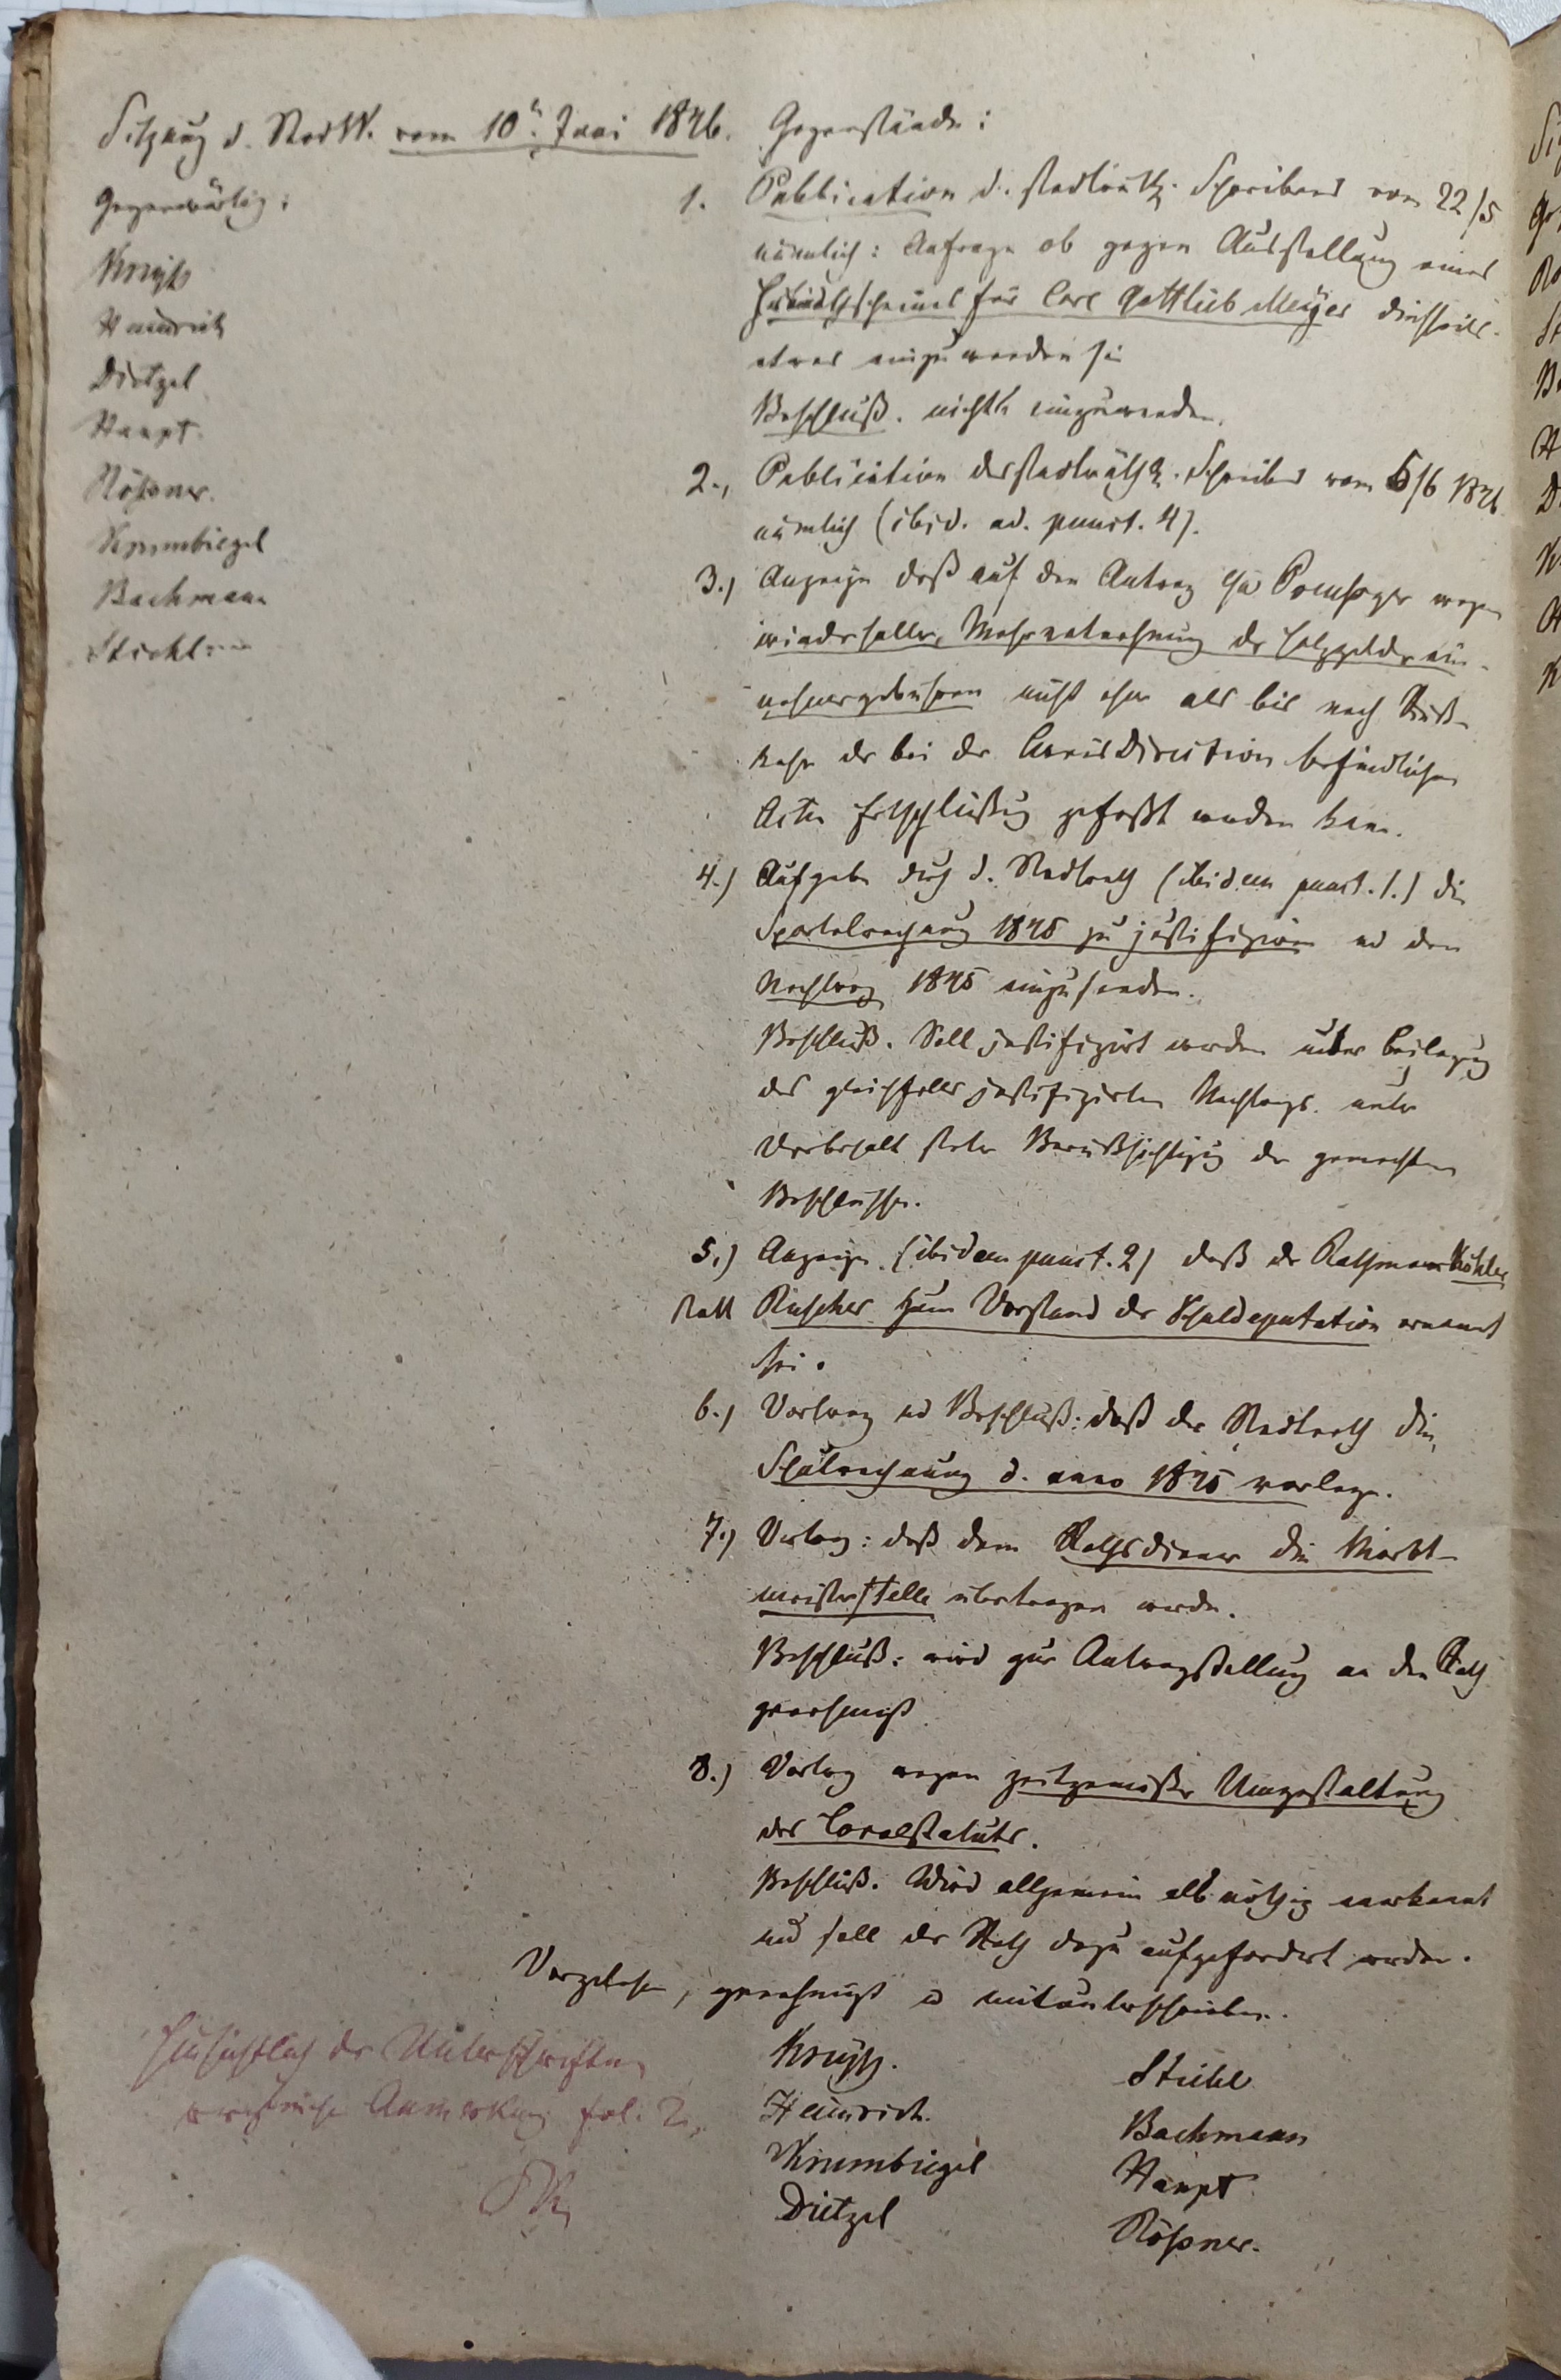 Sitzung d. StadtV. vom 10t. Juni 1846.
Gegenwärtig:
Heinrich
Dietzel
Haupt.
Rößner.
Krumbiegel
Bachmann
Stichl
Gegenstände:
1. Publication d. stadträthl. Schreibens vom 22/5
nämlich: Anfrage ob gegen Ausstellung eines
Heimathscheines für Carl Gottlieb Meyer diesseits
etwas einzuwenden sei
Beschluß. nichts einzuwenden.
2., Publication des stadträthl. Schreibens vom 5/6 1846
nämlich (ibid. ad. punct. 4).
3.) Anzeige daß auf den Antrag wegen
der Holzgelderein-
nehmergebühren nicht eher als bis nach Rück-
kehr der bei der KreisDirection befindlichen
Acten Entschließung gefaßt werden kann.
4.) Aufgabe durch d. Stadtrath (ibidem punct. 1.) die
Sportelrechnung 1845 zu justifiziren und den
Nachtrag 1845 einzusenden.
Beschluß. Soll justifizirt werden unter Beilegung
des gleichfalls justifizirten Nachtrags. unter
Vorbehalt steter Berücksichtigung der gemachten
Beschlüsse.
5.) Anzeige (ibidem punct. 2) daß der Rathmann Köhler
statt Rascher zum Vorstand der Schuldeputation ernannt
sei.
6.) Vortrag und Beschluß: daß der Stadtrath die
Schulrechnung d. anno 1845 vorlege.
7.) Vortrag: daß dem Rathsdiener die Markt-
meisterstelle übertragen werde.
Beschluß: wird zur Antragstellung an den Rath
genehmigt
8.) Vortrag wegen zeitgemäßer Umgestaltung
des Localstatuts.
Beschluß. Wird allgemein als nöthig anerkannt
und soll der Rath dazu aufgefordert werden.
Vorgelesen, genehmigt u mitunterschrieben.
Hinsichtlich der Unterschriften
Anmerkung fol. 2.
Heinrich.
Krumbiegel
Dietzel
Stichl
Bachmann
Haupt
Rößner.